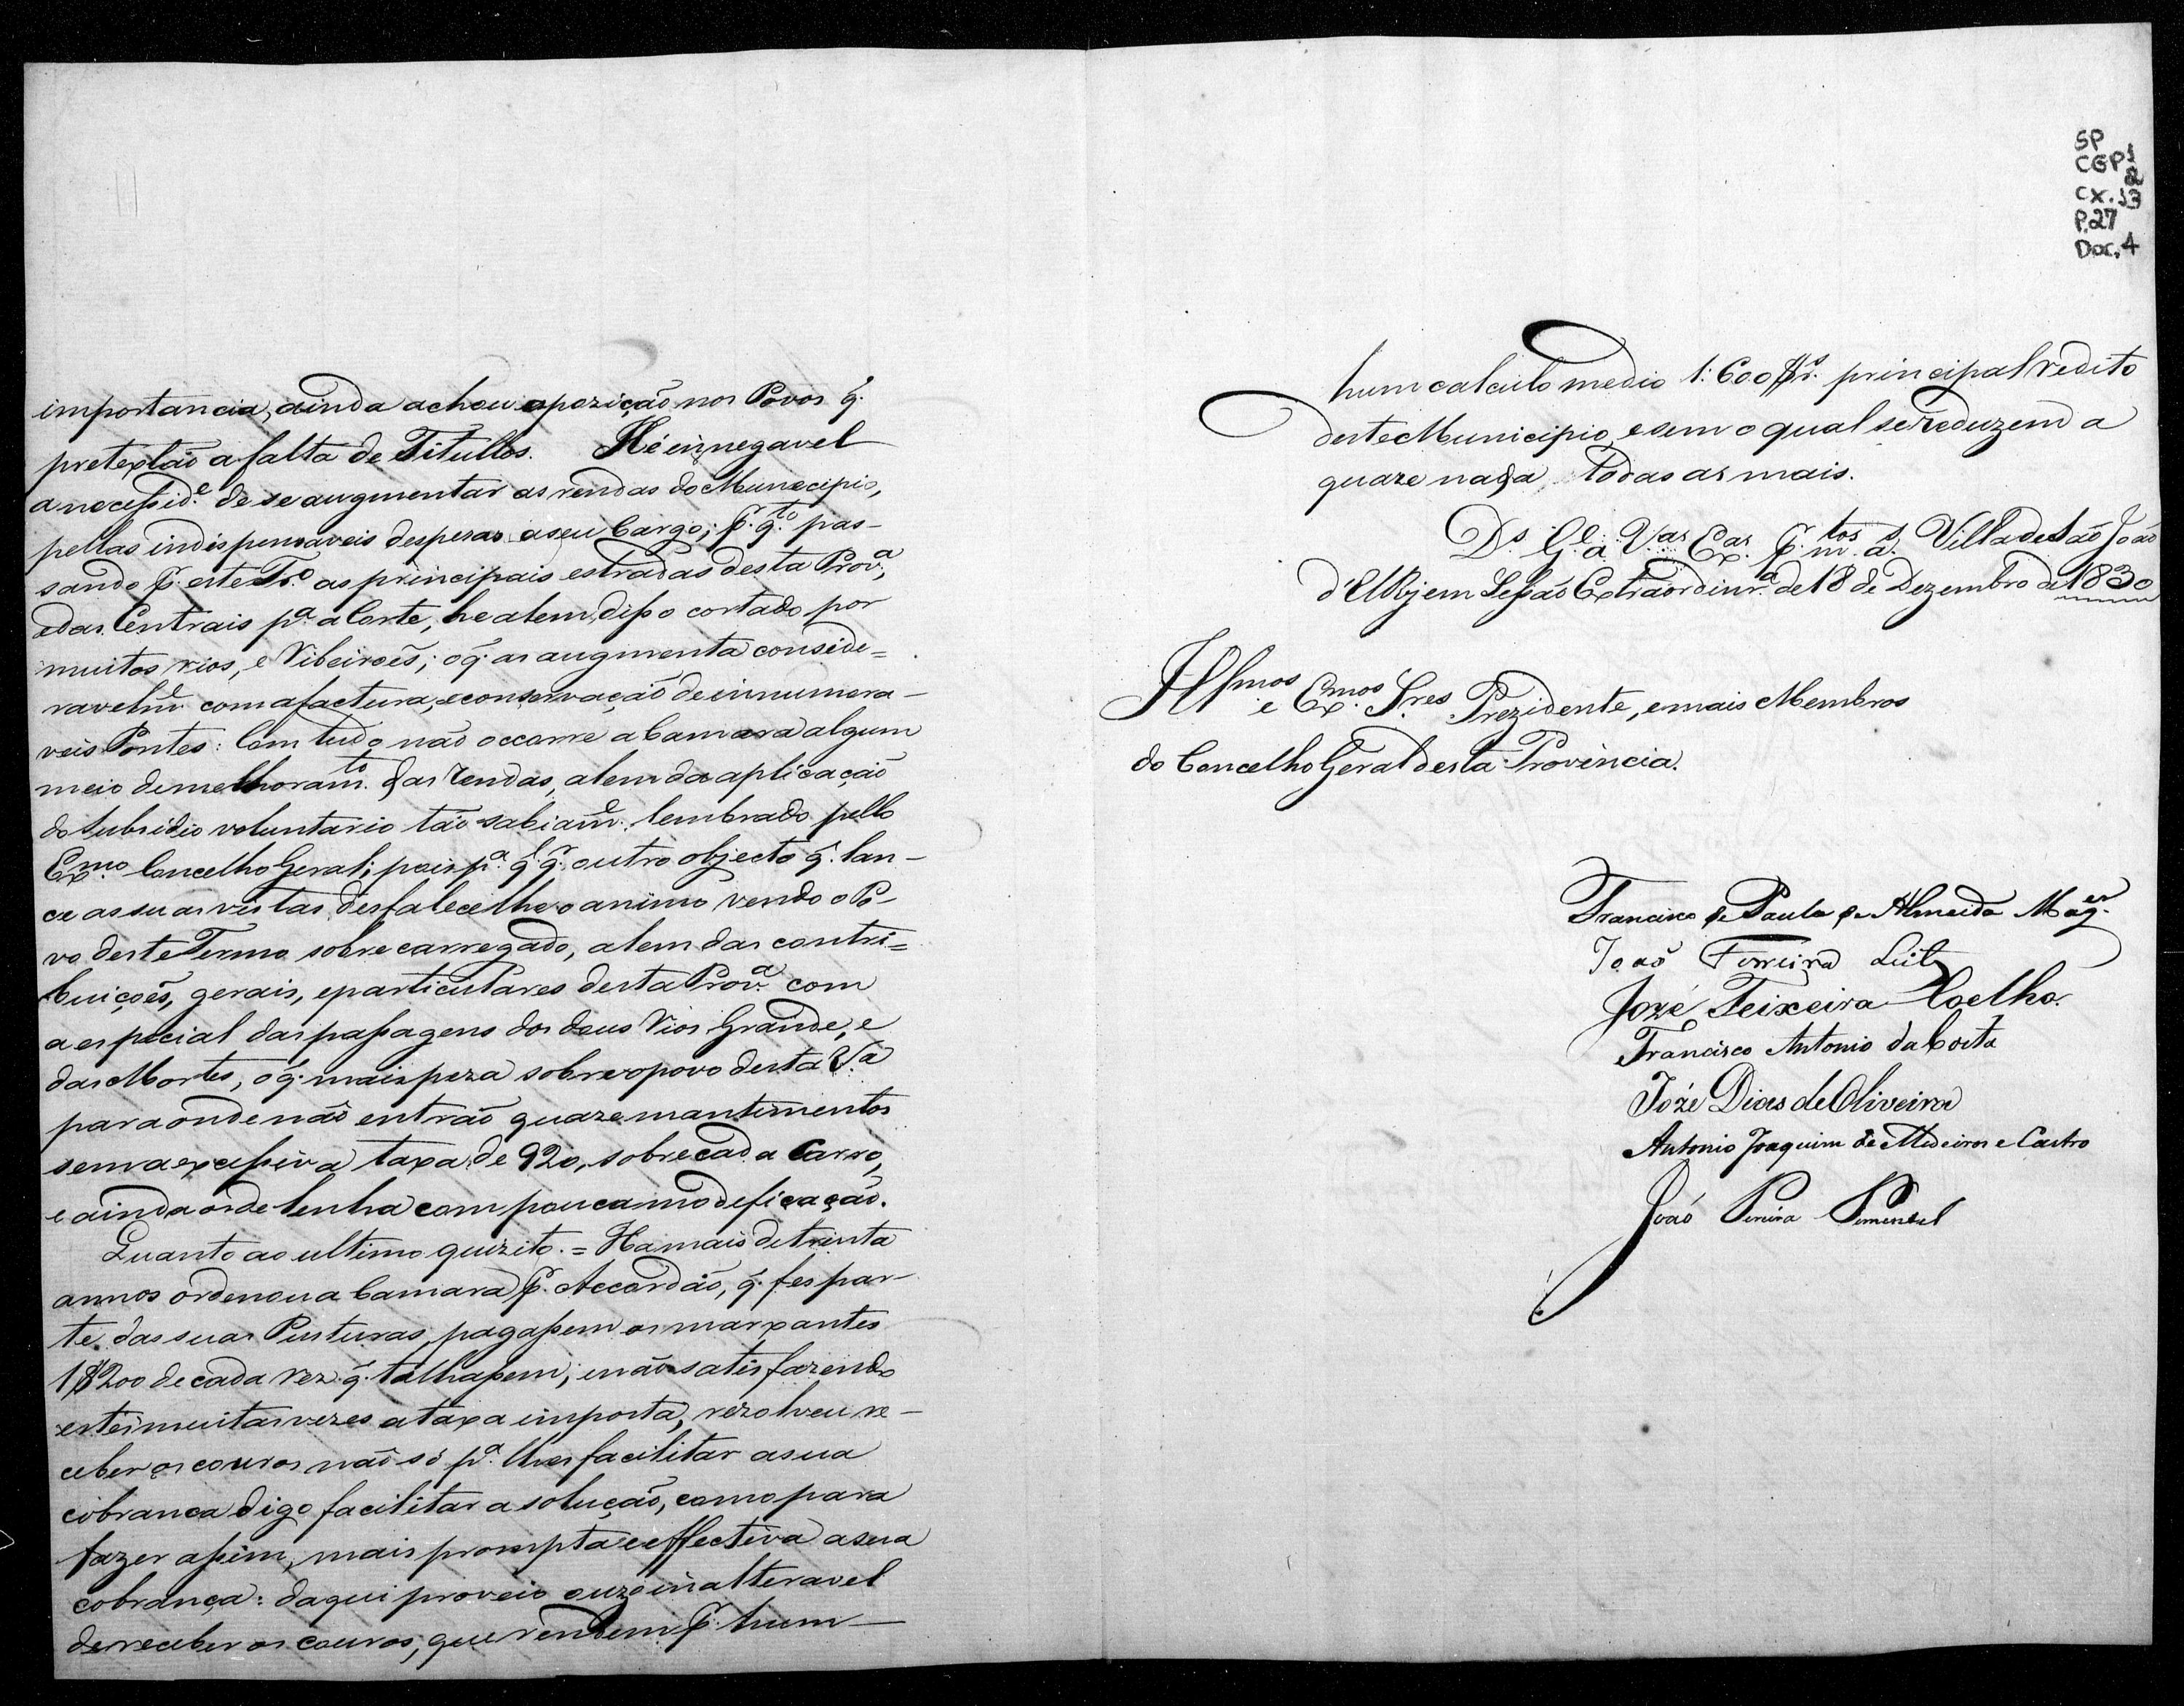 importancia, ainda achou opozição nos Povos q.
pretextão a falta de Titullos. Hé innegavel
a necessid.e de se augmentar as rendas do Municipio,
pellas indispensaveis despezas a seu Cargo; p. q.to pas-
sando p. este Tr.o as principais estradas desta Prov.a,
e das Centrais p.a a Corte, he alem disso cortado por
muitos rios, e Ribeiroẽs; o q. as augmenta conside=
ravelm.e com a factura, e conservação de innumera-
veis Pontes: Com tudo não occorre a Camara algum
meio de melhoram.to das rendas, alem da aplicação
do subsidio voluntario tão sabiam.e lembrado pello
Ex.mo Concelho Geral; pois p.a q.l q.r outro objecto q. lan-
ce as suas vistas, desfalece lhe o animo vendo o Po-
vo deste Termo sobrecarregado, alem das contri=
buiçoẽs, gerais, e particulares desta Prov.a com
a especial das passagens dos deus Rios Grande, e
das Mortes, o q. mais peza sobre o povo desta V.a
para onde não entrão quaze mantimentos
sem a excessiva taxa de 920, sobre cada Carro,
e ainda os de lenha com pouca modeficação.
Quanto ao ultimo quizito. = Ha mais de trinta
annos ordenou a Camara p. Accordão, q. fes par-
te das suas Pusturas, pagassem os marxantes
1$200 de cada rez q. talhassem; e não satisfazendo
estes muitas vezes a taxa imposta, rezolveu re-
ceber os couros não só p.a lhes facilitar a sua
cobranca digo facilitar a solução, como para
fazer assim, mais prompta e effectiva a sua
cobrança: daqui proveio o uzo inalteravel
de receber os couros, que rendem p. hum
SP
CGP1
Cx.
P.27
Doc. 4
hum calculo medio 1:600$rs. principal redito
deste Municipio, e sem o qual se reduzem a
quaze nada todas as mais.
D.s G.e a V.as Ex.as p. m.tos a.s Villa de São João
d'ElRej em Sessão Extraordinr.a de 18 de Dezembro de 1830
Ill.mos e Ex.mos Sres. Prezidente, e mais Membros
do Concelho Geral desta Provincia.
Francisco de Paula de Almeida Mag.es
João Ferreira Leite
Jozé Teixeira Coelho.
Francisco Antonio da Costa
Jozé Dias de Oliveira
Antonio Joaquim de Medeiros e Castro
João Pereira Pimentel